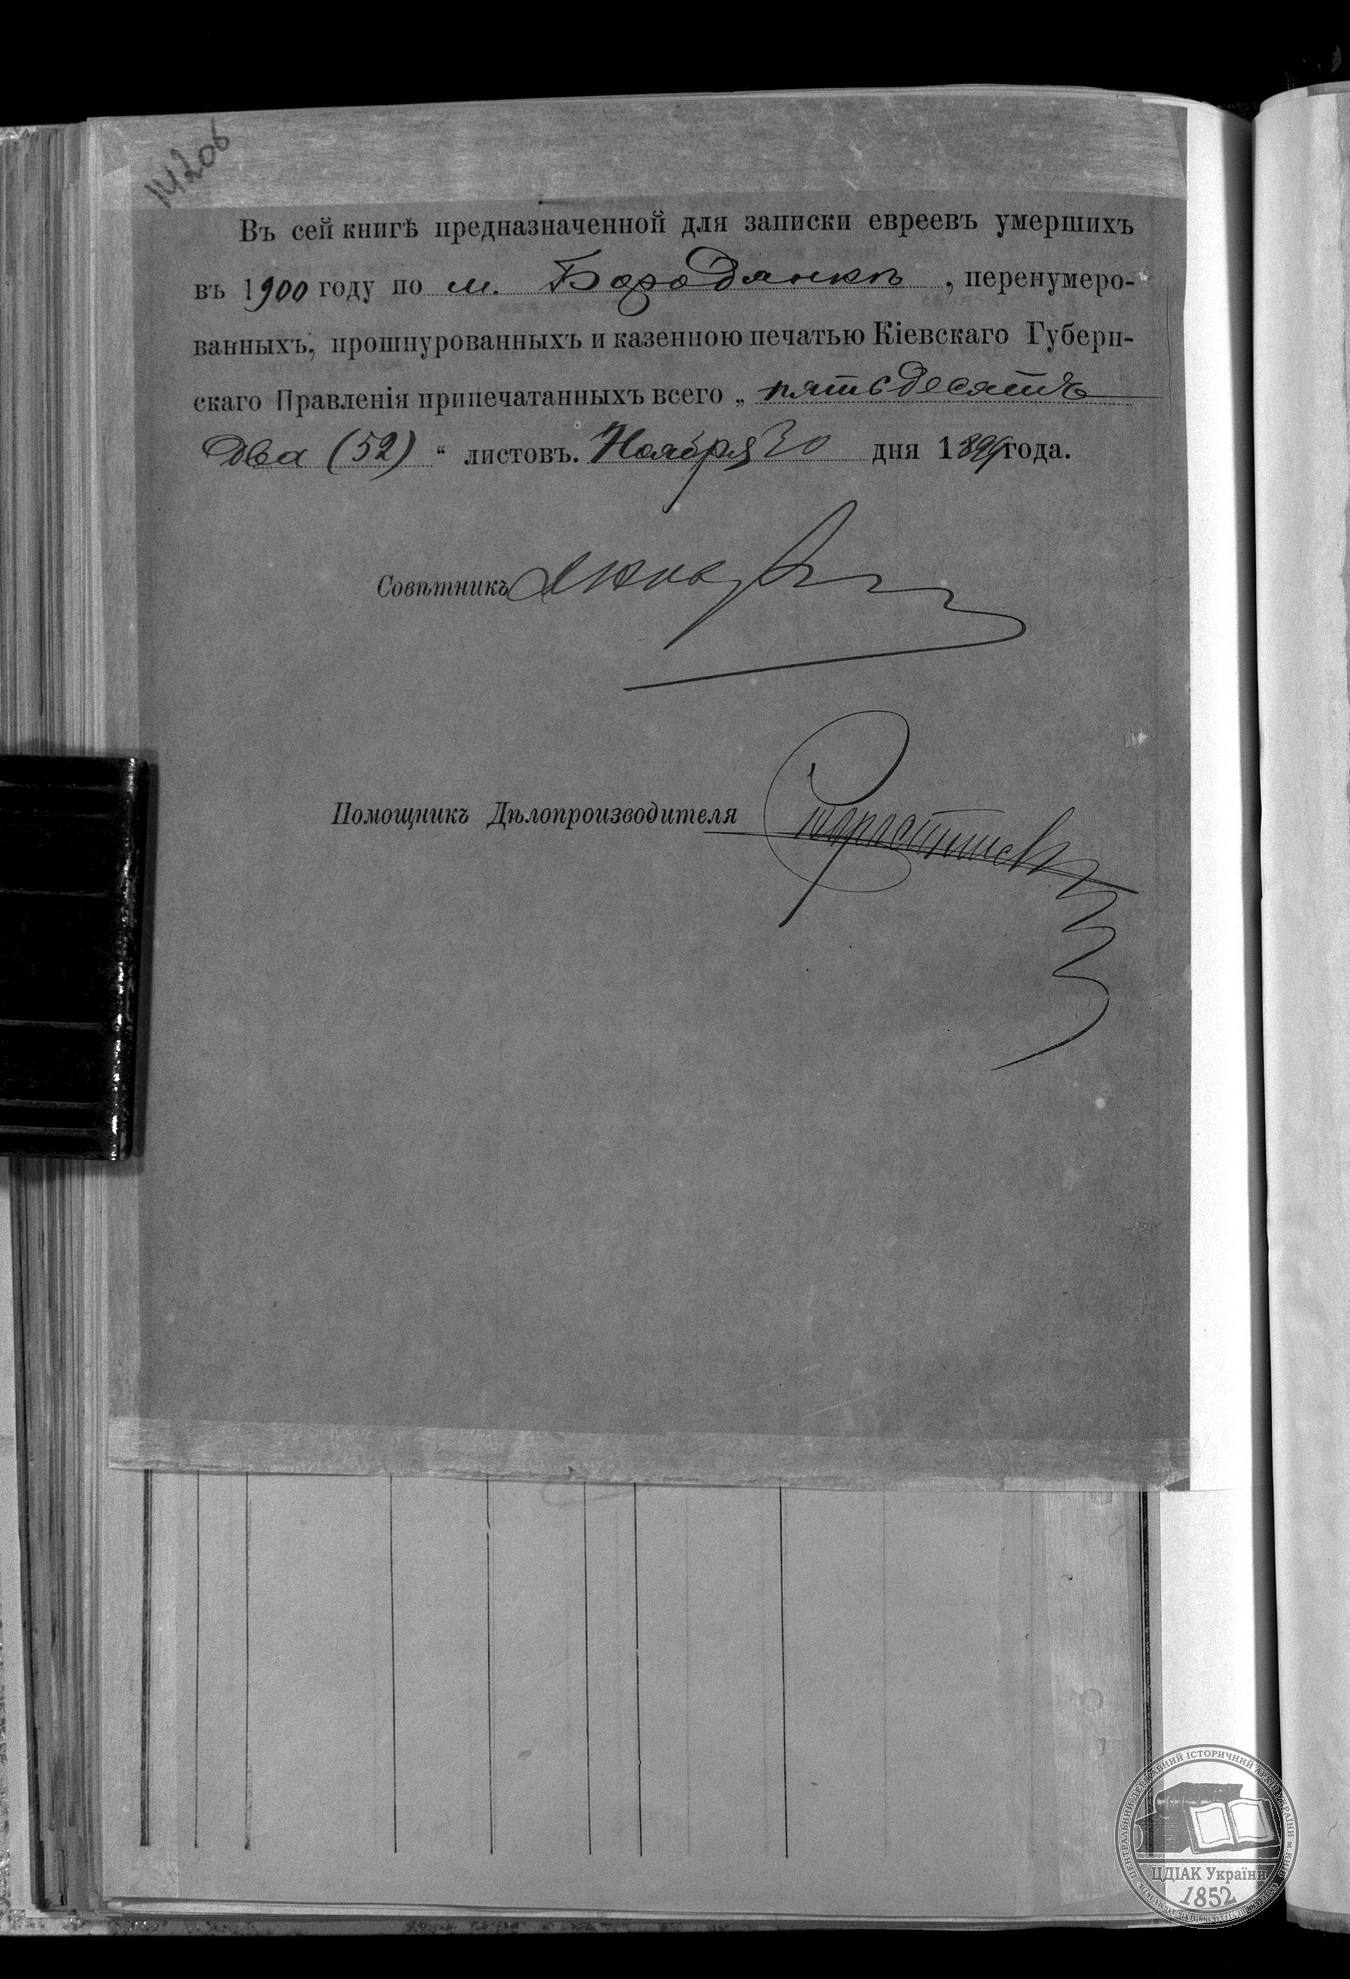 Въ сей книгѣ предназначенной для записки евреевъ умершихъ
въ 1900 году по м. Бородянкѣ, перенумеро-
ванныхъ, прошнурованныхъ и казенною печатью Кіевскаго Губерн-
скаго Правленія припечатанныхъ всего „ пятьдесятъ
два (52) “ листовъ. Ноября 30 дня 1899 года.
Совѣтникъ
Помощникъ Дѣлопроизводителя
ЦЕНТРАЛЬНИЙ ДЕРЖАВНИЙ ІСТОРИЧНИЙ АРХІВ УКРАЇНИ м. КИЇВ
ЦДІАК України
1852